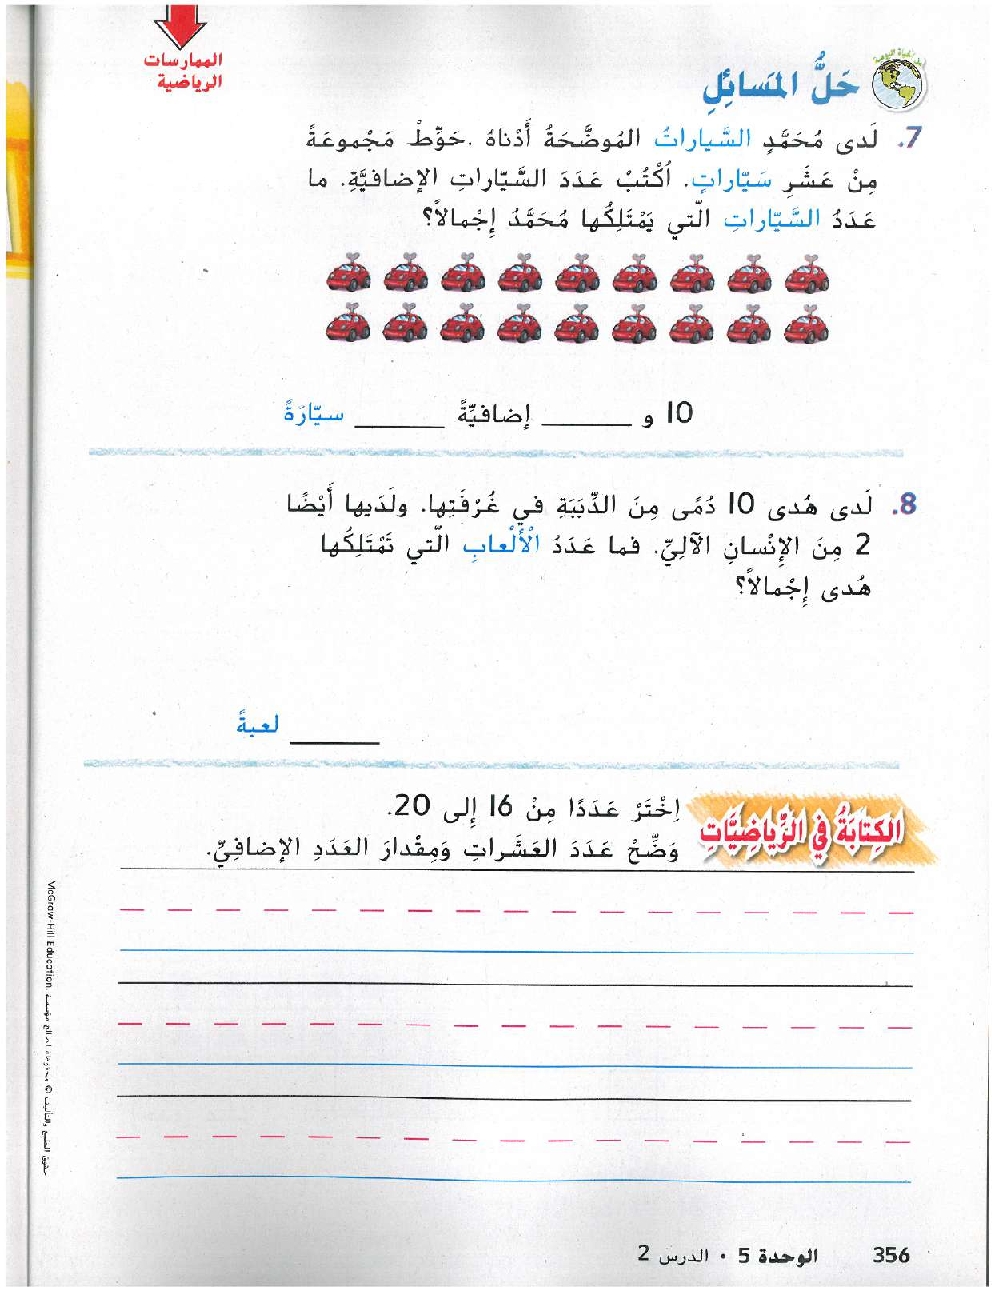 الممارسات
الرياضية
حَلُّ المَسائِلِ
7. لَدى مُحَمَّدٍ السَّياراتُ المُوضَّحَةُ أَدْناهُ. حَوِّطْ مَجْموعَةً
مِنْ عَشْرِ سَيّاراتٍ. اُكْتُبْ عَدَدَ السَّيّاراتِ الإضافيَّةِ. ما
عَدَدُ السَّيّاراتِ الّتي يَمْتَلِكُها مُحَمَّدُ إجْمالاً؟
10 و ______ إضافيَّةً ______ سيّارَةً
8. لَدى هُدى 10 دُمًى مِنَ الدِّبَبَةِ في غُرْفَتِها. ولَدَيها أَيْضًا
2 مِنَ الإنْسانِ الآلِيِّ. فما عَدَدُ الْأَلْعابِ الّتي تَمْتَلِكُها
هُدى إِجْمالاً؟
______ لعبةً
الكِتابَةُ في الرِّياضيّاتِ
اِخْتَرْ عَدَدًا مِنْ 16 إلى 20.
وَضِّحْ عَدَدَ العَشَراتِ وَمِقْدارَ العَدَدِ الإضافِيِّ.
حقوق الطبع والتأليف © محفوظة لصالح مؤسسة McGraw-Hill Education
356 الوحدة 5 • الدرس 2